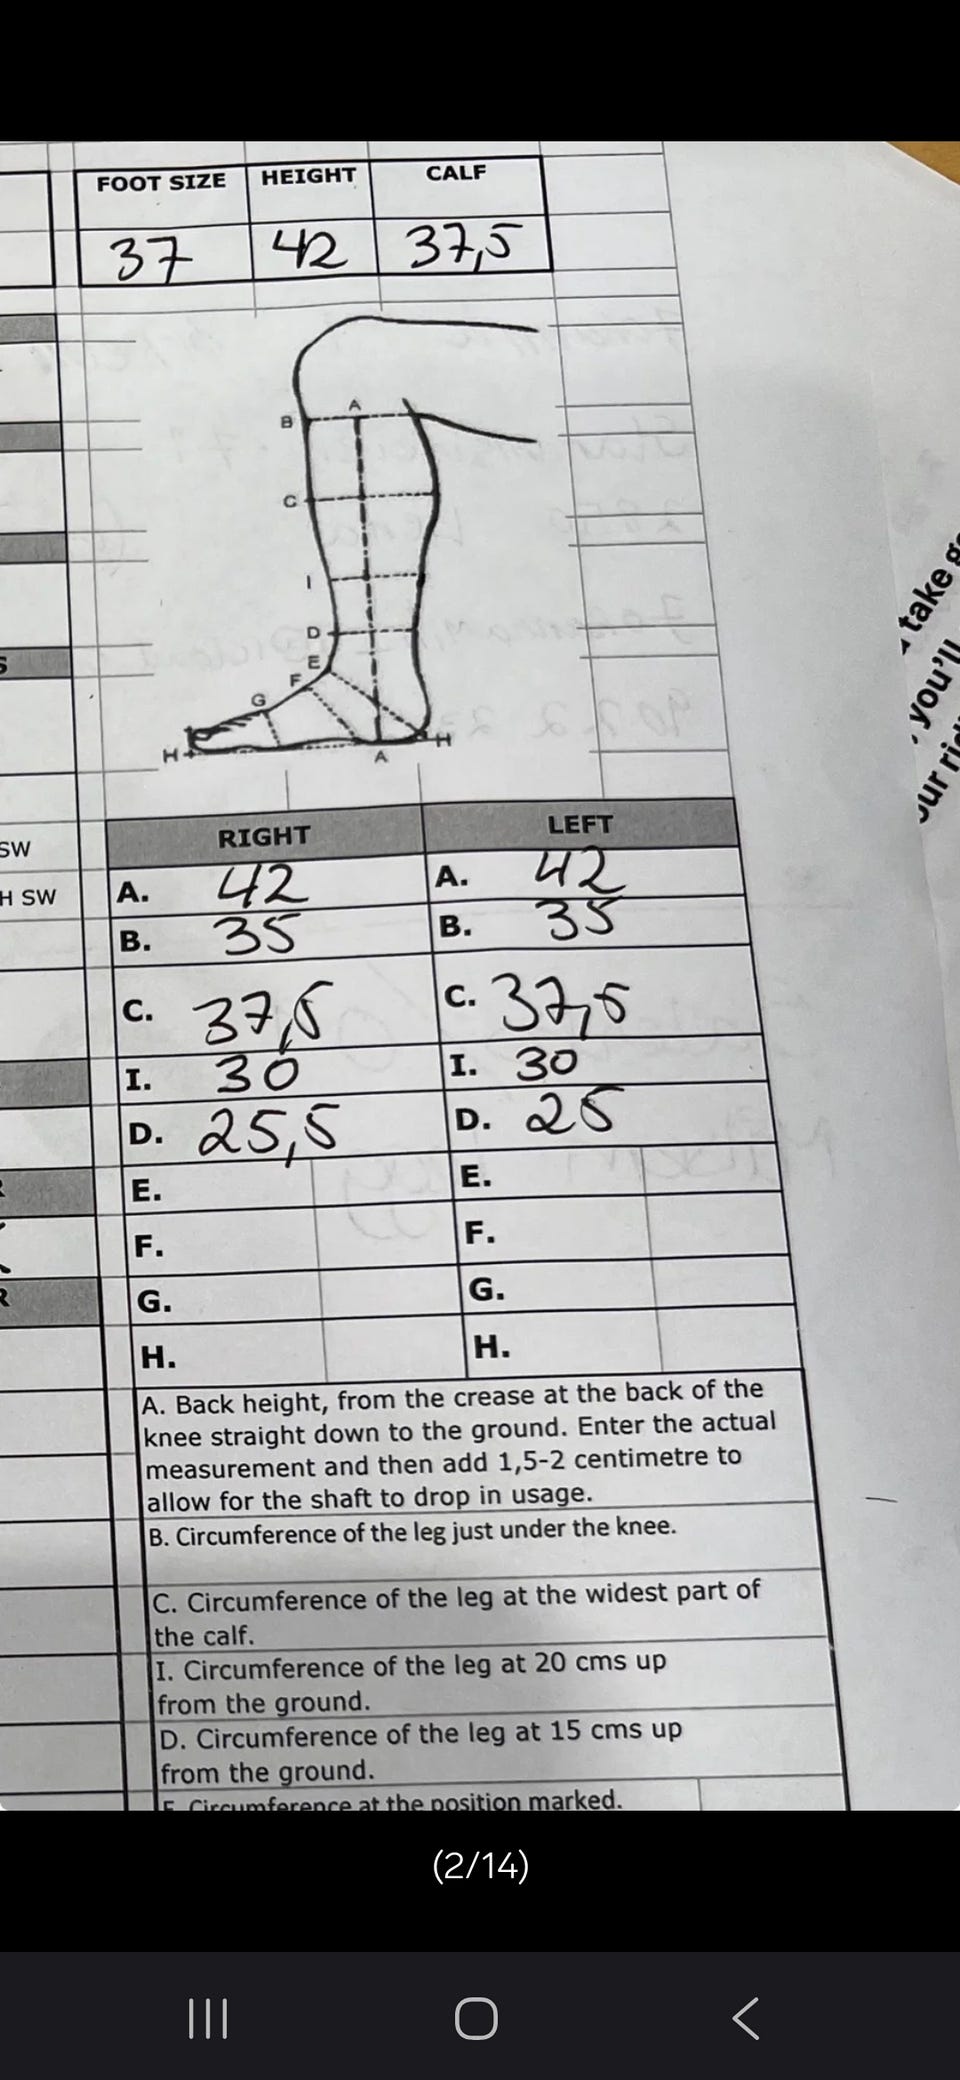 FOOT SIZE HEIGHT CALF
37 42 37,5
A
B
C
I
D
E
F
G
H H
A
S
SW
H SW
R
R
RIGHT LEFT
A. 42 A. 42
B. 35 B. 35
C. 37,5 C. 37,5
I. 30 I. 30
D. 25,5 D. 25
E. E.
F. F.
G. G.
H. H.
A. Back height, from the crease at the back of the
knee straight down to the ground. Enter the actual
measurement and then add 1,5-2 centimetre to
allow for the shaft to drop in usage.
B. Circumference of the leg just under the knee.
C. Circumference of the leg at the widest part of
the calf.
I. Circumference of the leg at 20 cms up
from the ground.
D. Circumference of the leg at 15 cms up
from the ground.
E. Circumference at the position marked.
take
you'll
(2/14)